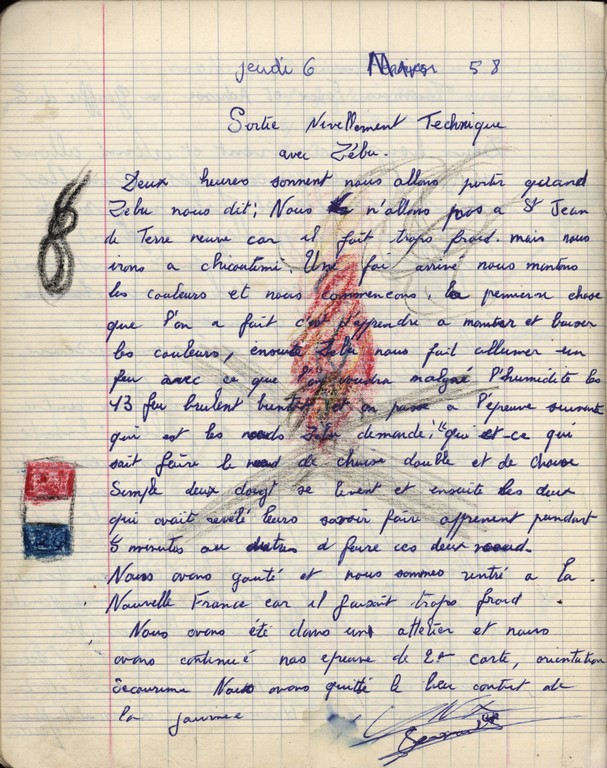 jeudi 6 Mars 58
Sortie Nivellement Technique
avec Zébu.
Deux heures sonnent nous allons partir quand
Zebu nous dit; Nous n'allons pas a St Jean
de Terre neuve car il fait trops froid. mais nous
irons a chicoutimi. Une foi arrivé nous montons
les couleurs et nous commencons, la premiere chose
que l'on a fait c'est d'aprendre a monter et baiser
les couleurs, ensuite Zebu nous fait allumer un
feu avec ce que l'on voudra malgré l'humidité les
13 feu brulent bientot et on passe a l'épreuve suivante
qui est les nœuds Zebu demande; "qui est-ce qui
sait faire le nœud de chaise double et de chaise
Simple deux doigt se levent et ensuite les deux
qui avait revélé leurs savoir faire apprenent pendant
5 minutes au autres a faire ces deux nœud.
Nous avons gouté et nous sommes rentré a la
Nouvelle France car il faisait trops froid.
Nous avons été dans un attelier et nous
avons continué nos epreuve de 2e carte, orientation
Secourisme Nous avons quitté le lieu content de
la journee